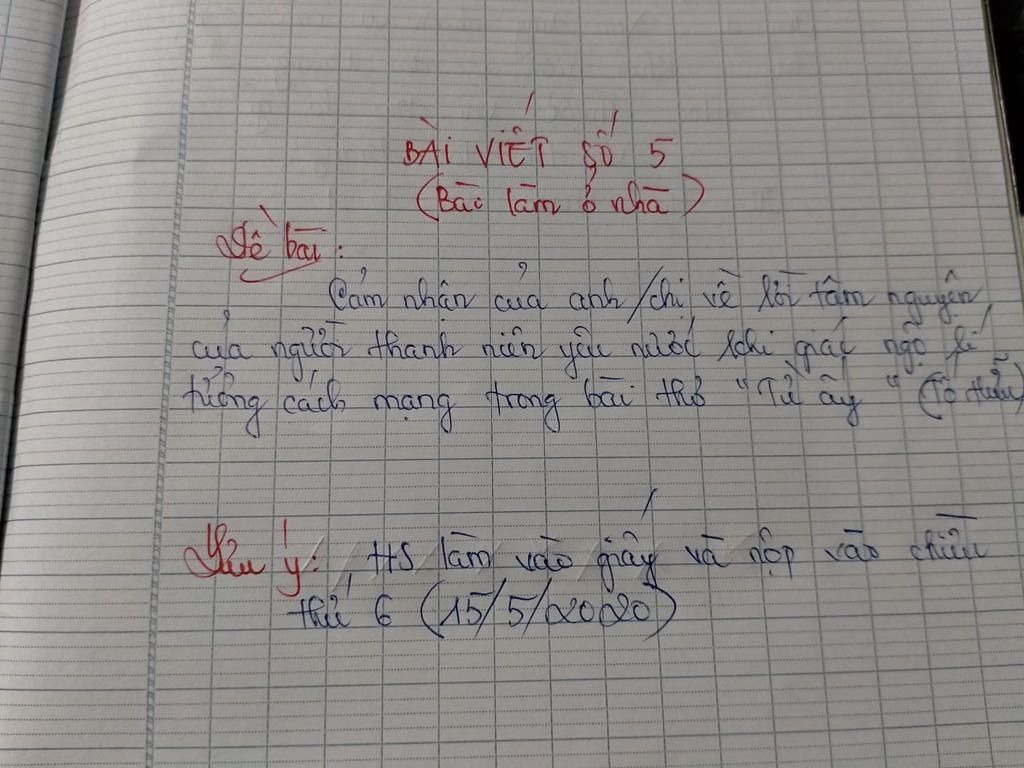 BÀI VIẾT SỐ 5
(Bài làm ở nhà)
Đề bài:
Cảm nhận của anh/chị về lời tâm nguyện
của người thanh niên yêu nước khi giác ngộ lí
tưởng cách mạng trong bài thơ "Từ ấy" (Tố Hữu)
Lưu ý: HS làm vào giấy và nộp vào chiều
thứ 6 (15/5/2020)